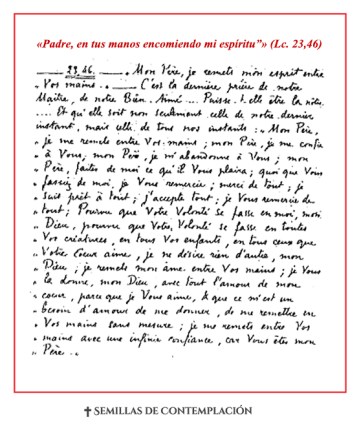 «Padre, en tus manos encomiendo mi espíritu”» (Lc. 23,46)
23, 46. „ Mon Père, je remets mon esprit entre
„ Vos mains. „ C'est la dernière prière de notre
Maître, de notre Bien-Aimé ... Puisse-t-elle être la nôtre
.... Et qu'elle soit non seulement celle de notre dernier
instant, mais celle de tous nos instants : „ Mon Père,
„ je me remets entre Vos mains ; mon Père, je me confie
„ à Vous, mon Père, je m'abandonne à Vous ; mon
„ Père, faites de moi ce qu'il Vous plaira ; quoi que Vous
„ fassiez de moi, je Vous remercie ; merci de tout ; je
„ suis prêt à tout ; j'accepte tout ; je Vous remercie de
„ tout ; Pourvu que Votre Volonté se fasse en moi, mon
„ Dieu, pourvu que Votre Volonté se fasse en toutes
„ Vos créatures, en tous Vos enfants, en tous ceux que
„ Votre Coeur aime, je ne désire rien d'autre, mon
„ Dieu ; je remets mon âme entre Vos mains ; je Vous
„ la donne, mon Dieu, avec tout l'amour de mon
„ coeur, parce que je Vous aime, & que ce m'est un
„ besoin d'amour de me donner, de me remettre en
„ Vos mains sans mesure ; je me remets entre Vos
„ mains avec une infinie confiance, car Vous êtes mon
„ Père „
SEMILLAS DE CONTEMPLACIÓN